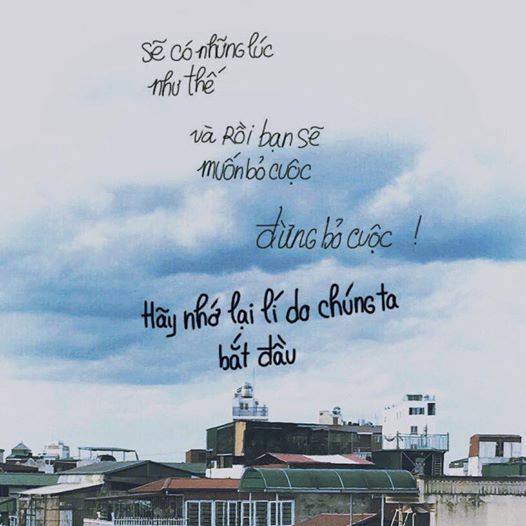 Sẽ có những lúc
như thế
và Rồi bạn sẽ
muốn bỏ cuộc
đừng bỏ cuộc !
Hãy nhớ lại lí do chúng ta
bắt đầu